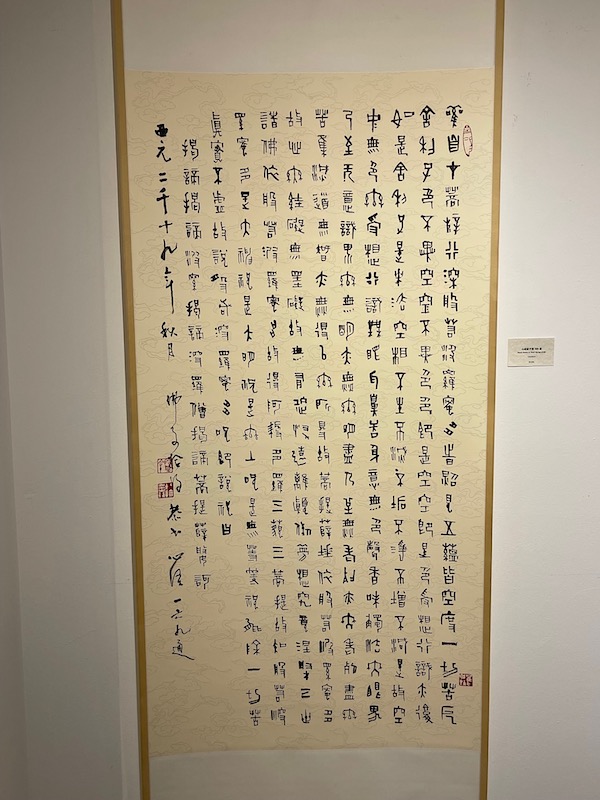 觀自在菩薩行深般若波羅蜜多時照見五蘊皆空度一切苦厄
舍利子色不異空空不異色色即是空空即是色受想行識亦復
如是舍利子是諸法空相不生不滅不垢不淨不增不減是故空
中無色無受想行識無眼耳鼻舌身意無色聲香味觸法無眼界
乃至無意識界無無明亦無無明盡乃至無老死亦無老死盡無
苦集滅道無智亦無得以無所得故菩提薩埵依般若波羅蜜多
故心無罣礙無罣礙故無有恐怖遠離顛倒夢想究竟涅槃三世
諸佛依般若波羅蜜多故得阿耨多羅三藐三菩提故知般若波
羅蜜多是大神咒是大明咒是無上咒是無等等咒能除一切苦
真實不虛故說般若波羅蜜多咒即說咒曰
揭諦揭諦波羅揭諦波羅僧揭諦菩提薩婆訶
西元二千十九年秋月 佛子 恭書 心經一六九通